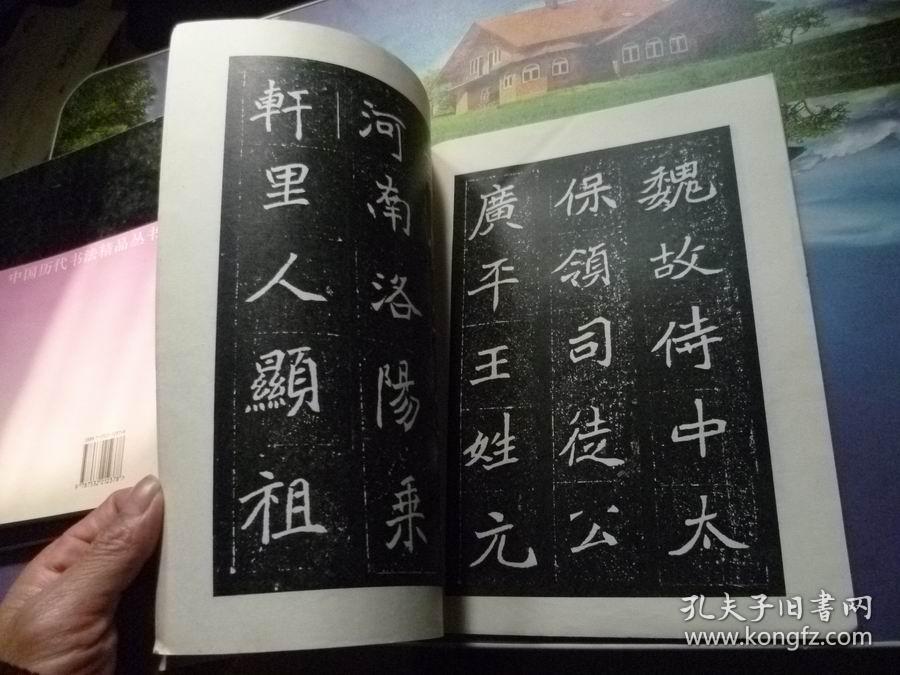 魏故侍中太
保領司徒公
廣平王姓元
河南洛陽乗
軒里人顯祖
中国历代书法精品丛书
孔夫子旧書网
www.kongfz.com